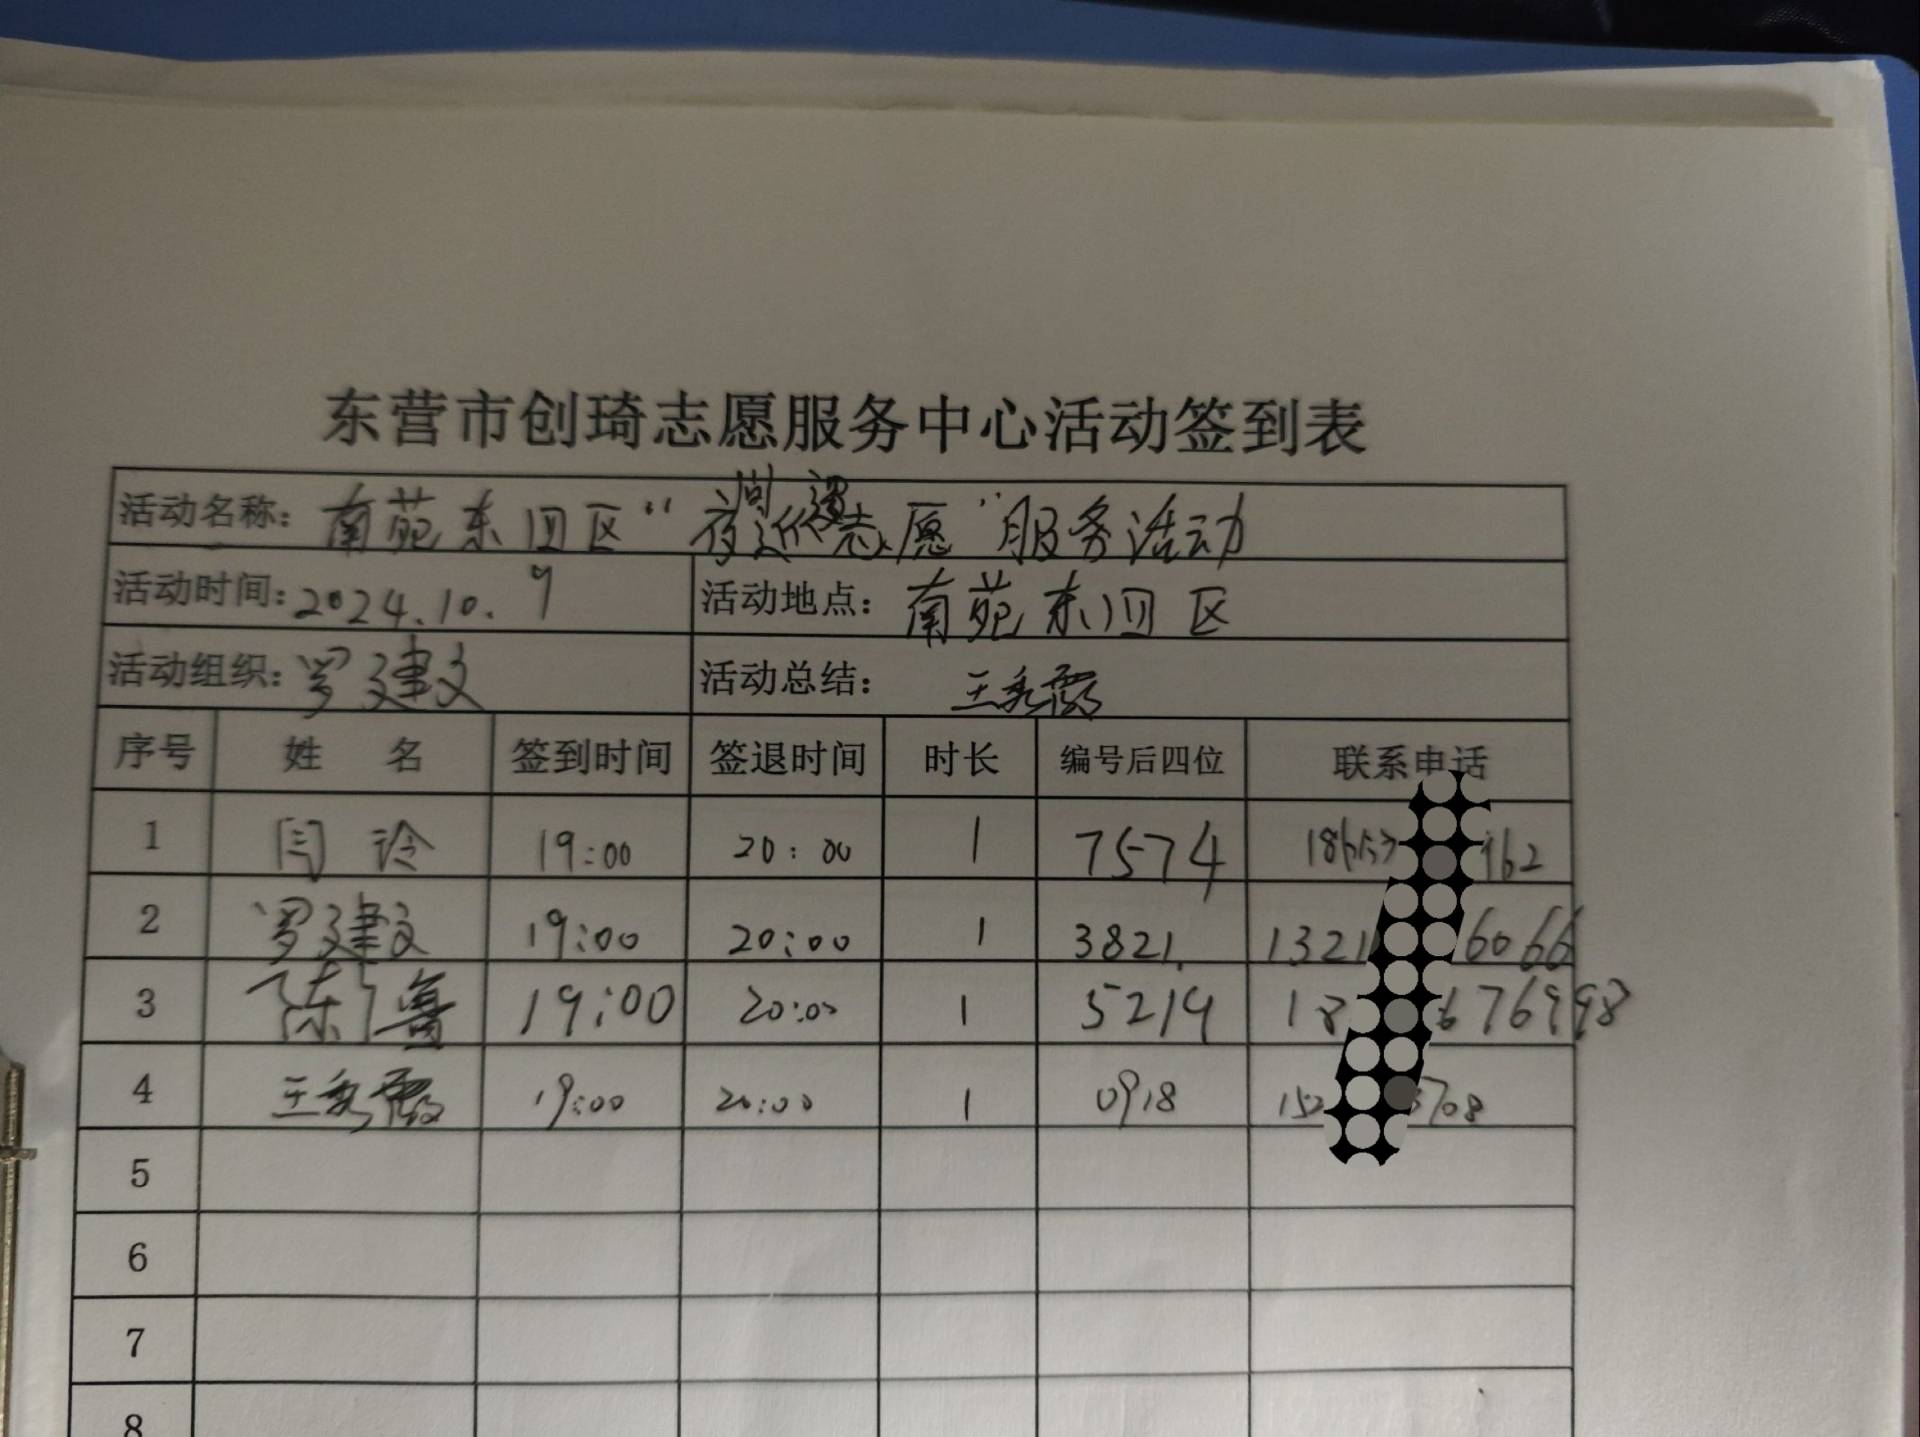 东营市创琦志愿服务中心活动签到表
活动名称：南苑东四区“夜间巡逻志愿”服务活动
活动时间：2024.10.9 活动地点：南苑东四区
活动组织：罗建文 活动总结：王秀霞
序号 姓 名 签到时间 签退时间 时长 编号后四位 联系电话
1 闫 玲 19:00 20:00 1 7574 162
2 罗建文 19:00 20:00 1 3821. 1321 6066
3 陈 19:00 20:00 1 5219 18 676998
4 王秀霞 19:00 20:00 1 0918 152 3708
5
6
7
8